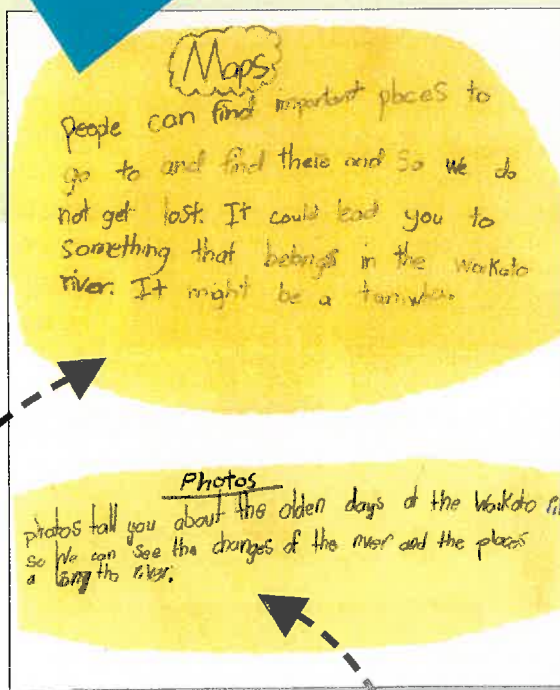 Maps
people can find important places to
go to and find there and so we do
not get lost. It could lead you to
something that belongs in the waikato
river. It might be a taniwha
Photos
photos tell you about the olden days of the Waikato
so we can see the changes of the river and the places
a long the river.